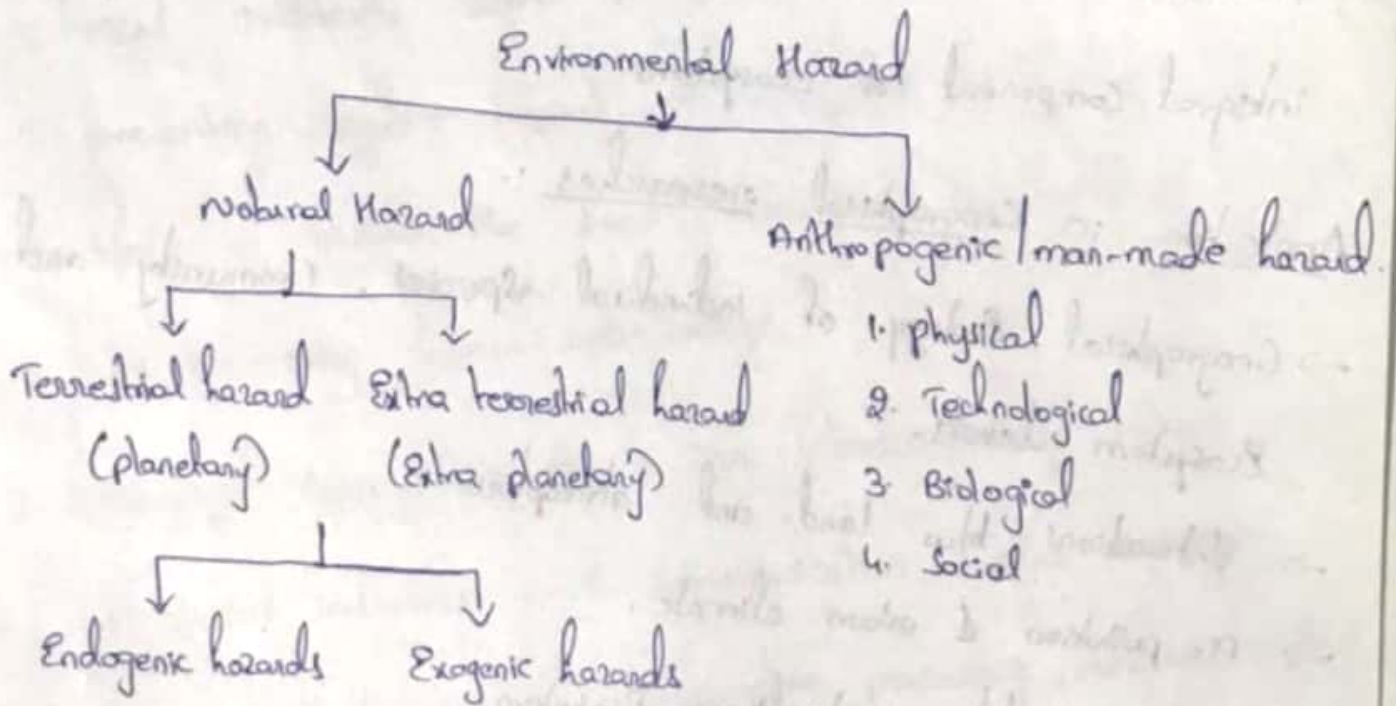 Environmental Hazard
Natural Hazard
Anthropogenic / man-made hazard.
1. physical
2. Technological
3. Biological
4. Social
Terrestrial hazard
(planetary)
Extra terrestrial hazard
(Extra planetary)
Endogenic hazards
Exogenic hazards